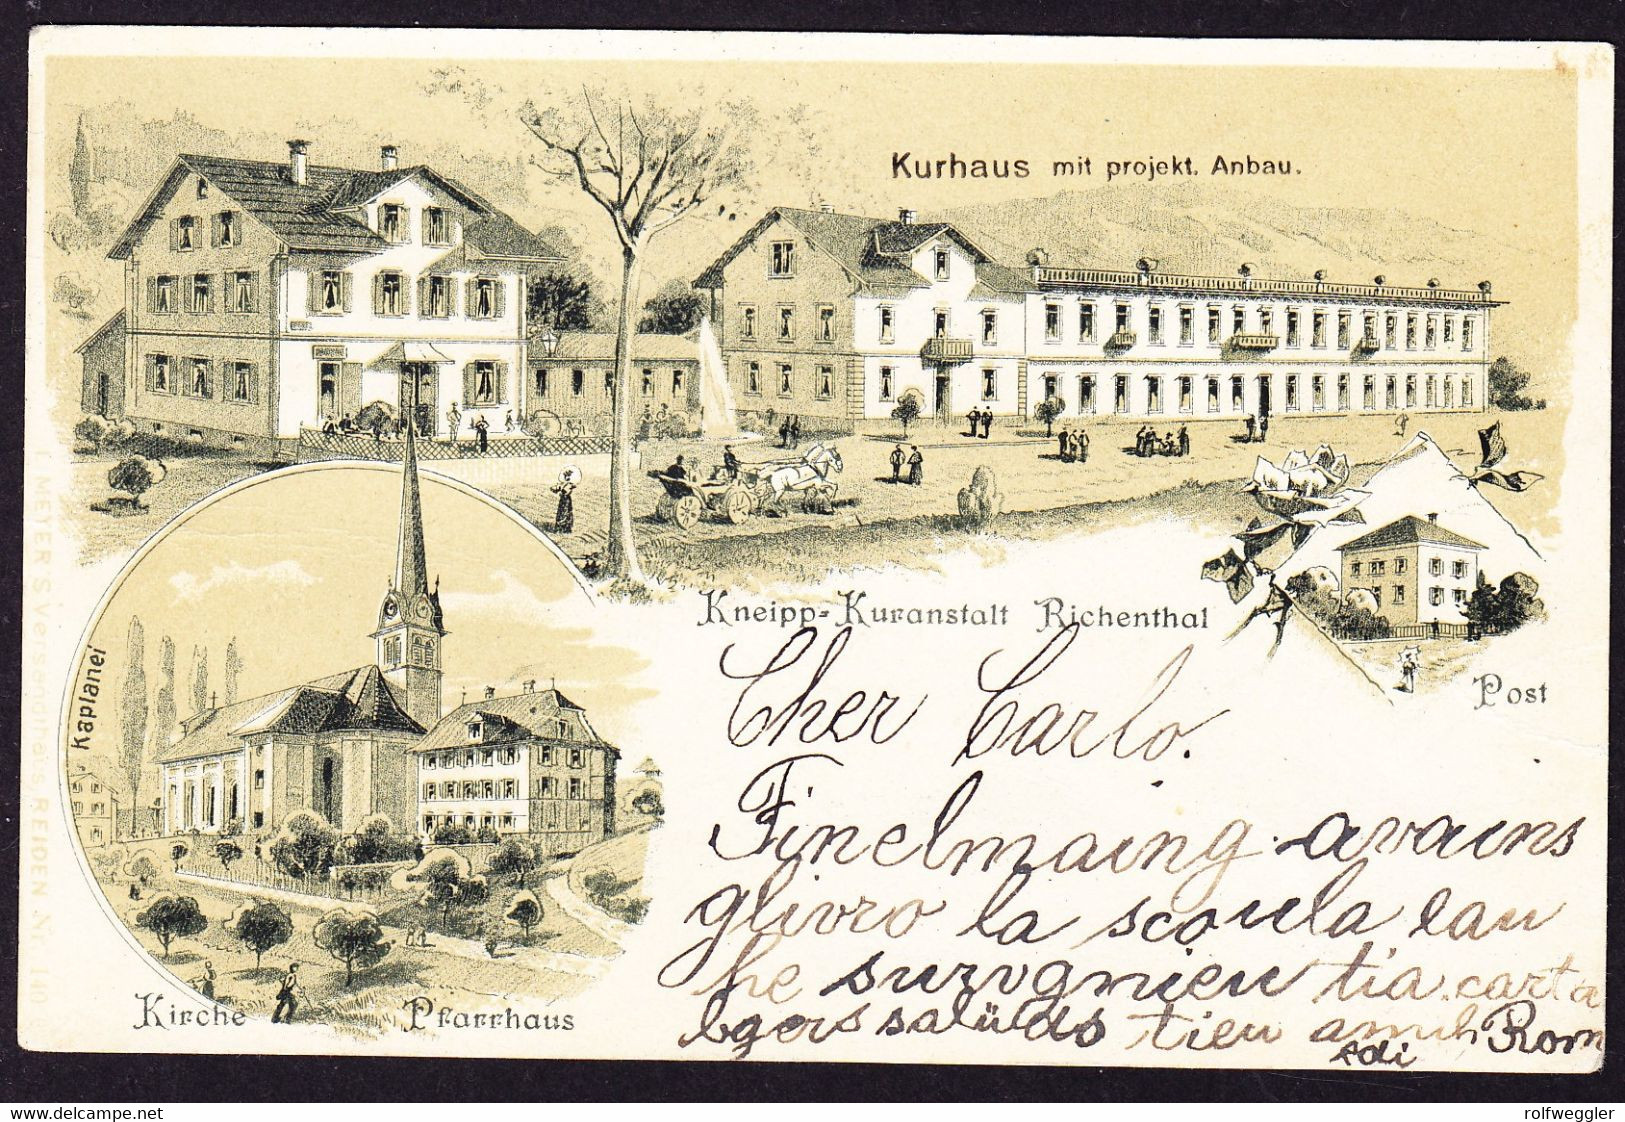 Kurhaus mit projekt. Anbau.
Kneipp-Kuranstalt Richenthal
Post
Kaplanei
Kirche
Pfarrhaus
MEYER'S Versendthals, REIDEN Nr. 140
Cher Carlo.
Finelmaing avains
glivro la scoula eau
he suzognieu tia carta
bgers salüds tieu amih Rom
edi
© delcampe.net
rolfweggler